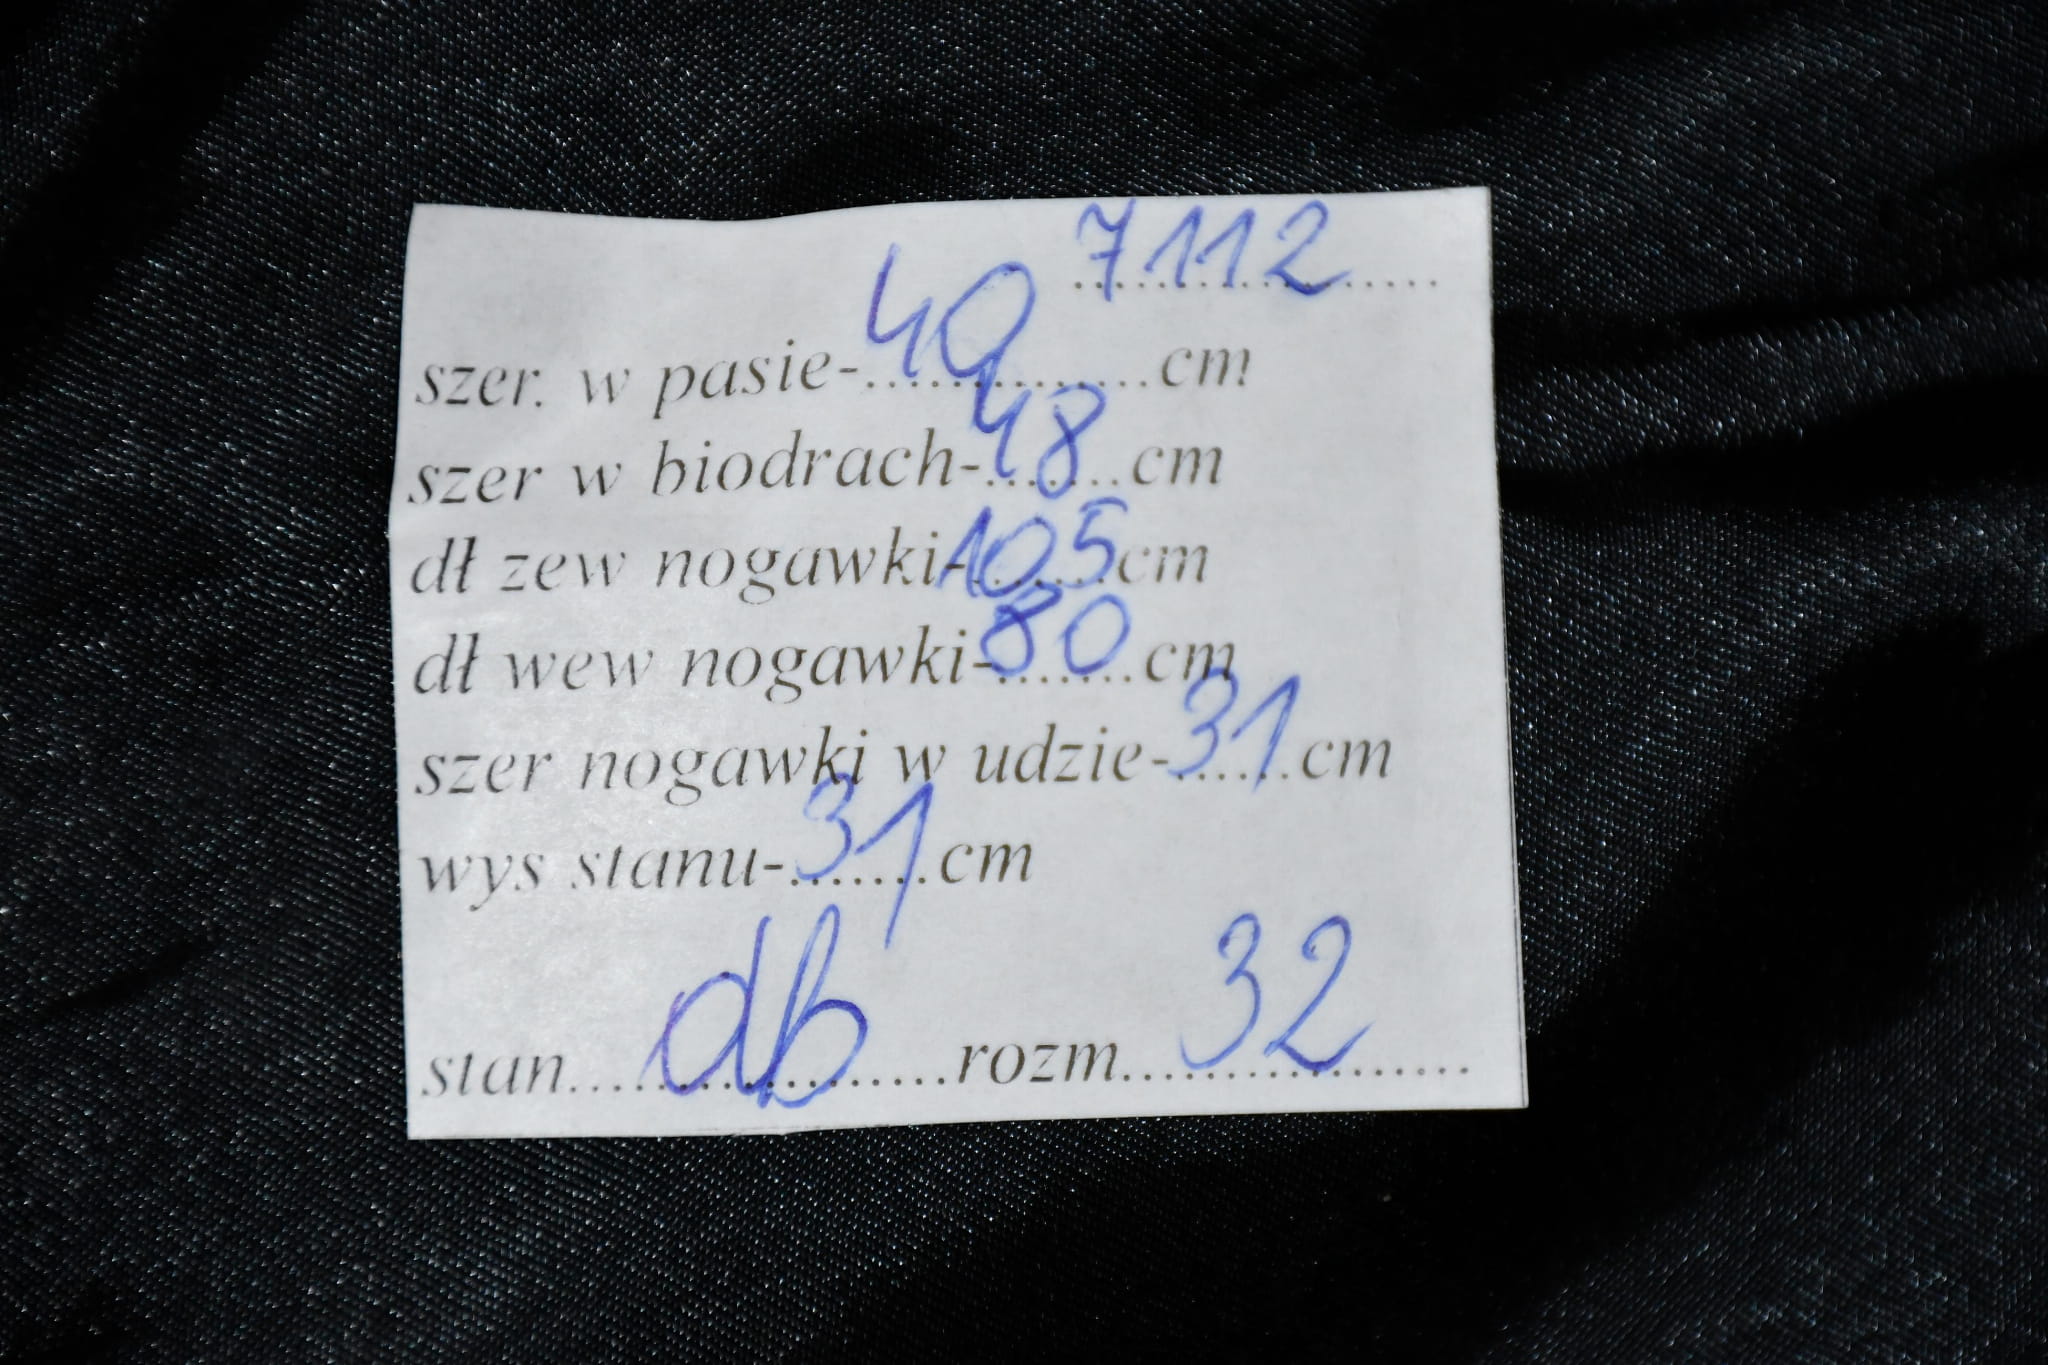 7112
szer. w pasie-40cm
szer w biodrach-48cm
dł zew nogawki-105cm
dł wew nogawki-80cm
szer nogawki w udzie-31cm
wys stanu-31cm
stan....db....rozm....32....